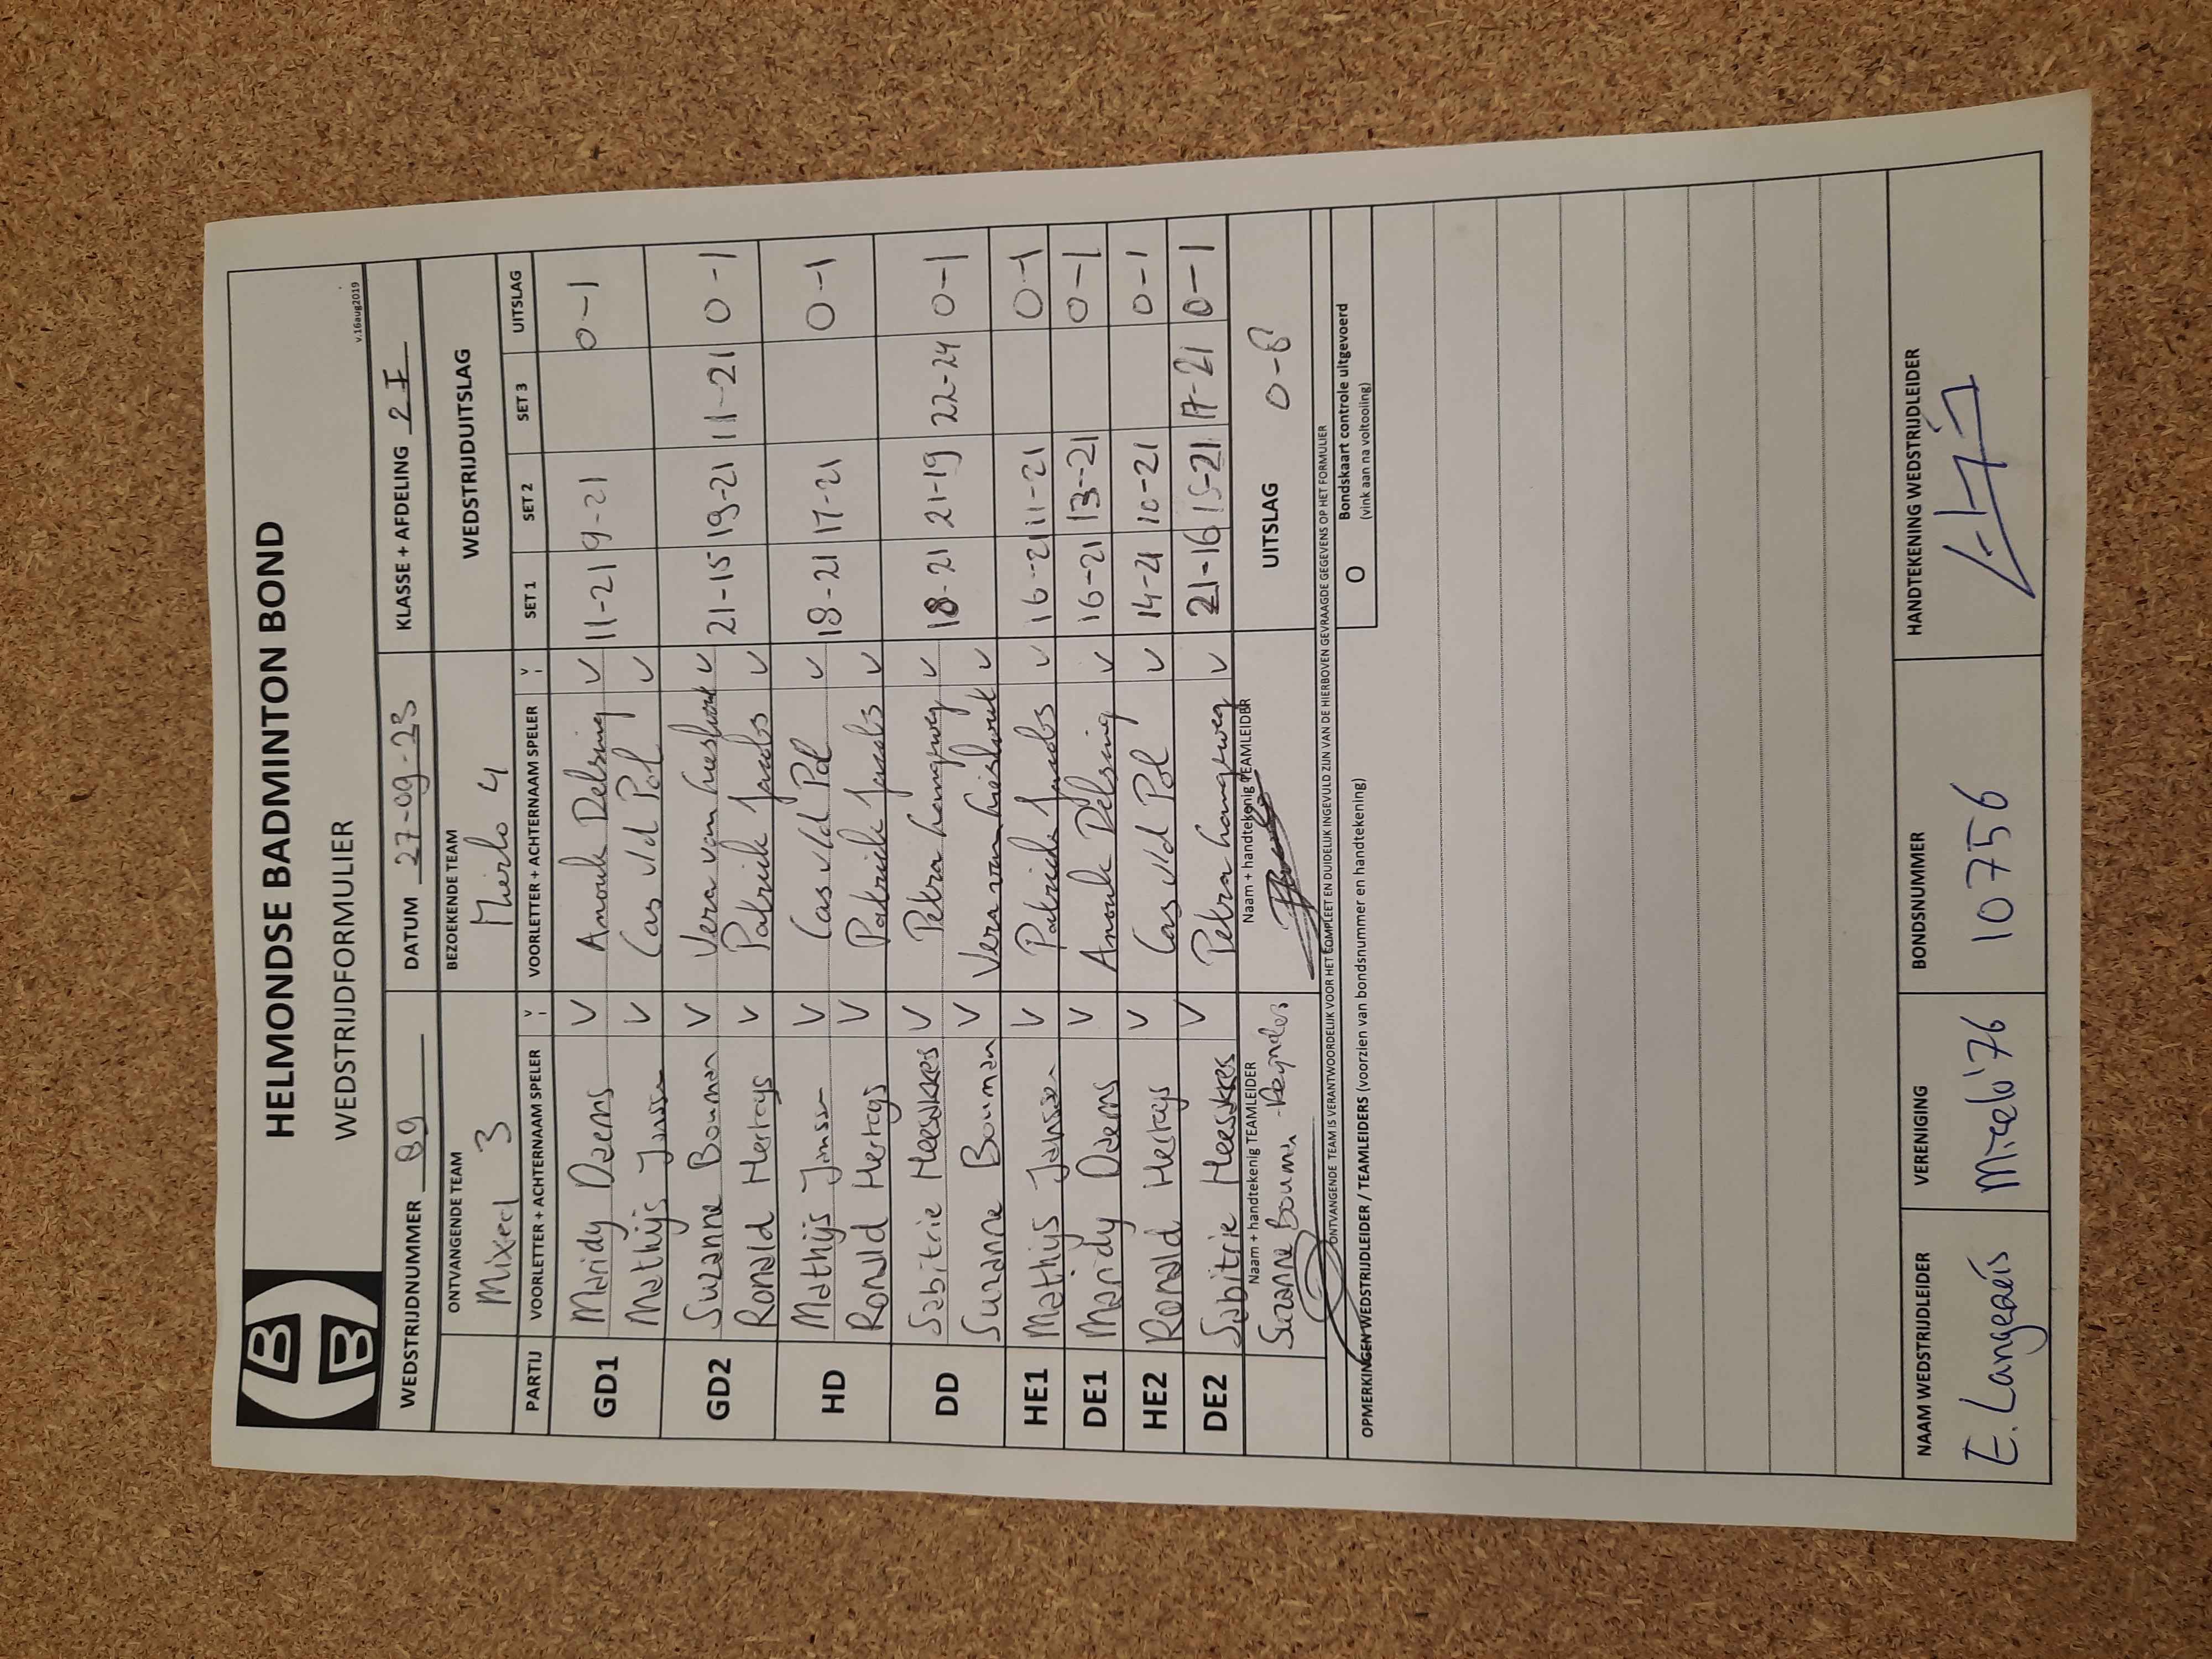 HELMONDSE BADMINTON BOND
WEDSTRIJDFORMULIER
v.16aug2019
WEDSTRIJDNUMMER 89 DATUM 27-09-23 KLASSE + AFDELING 2I
ONTVANGENDE TEAM BEZOEKENDE TEAM WEDSTRIJDUITSLAG
Mixed 3 Mierlo 4
PARTIJ VOORLETTER + ACHTERNAAM SPELER V VOORLETTER + ACHTERNAAM SPELER V SET 1 SET 2 SET 3 UITSLAG
GD1 Mandy Daems V Anouk Delsing V 11-21 9-21 0-1
Mathijs Jansen V Cas v/d Pol V
GD2 Suzanne Bouman V Vera van Lieshout V 21-15 19-21 11-21 0-1
Ronald Hertogs V Patrick Jacobs V
HD Mathijs Jansen V Cas v/d Pol V 18-21 17-21 0-1
Ronald Hertogs V Patrick Jacobs V
DD Sabitrie Heeskkes V Petra Langeweg V 18-21 21-19 22-24 0-1
Suzanne Bouman V Vera van Lieshout V
HE1 Mathijs Jansen V Patrick Jacobs V 16-21 11-21 0-1
DE1 Mandy Daems V Anouk Delsing V 16-21 13-21 0-1
HE2 Ronald Hertogs V Cas v/d Pol V 14-21 10-21 0-1
DE2 Sabitrie Heeskkes V Petra Langeweg V 21-16 15-21 17-21 0-1
Naam + handtekenig TEAMLEIDER Naam + handtekenig TEAMLEIDER UITSLAG 0-8
Suzanne Bouman - Reijnders
ONTVANGENDE TEAM IS VERANTWOORDELIJK VOOR HET COMPLEET EN DUIDELIJK INGEVULD ZIJN VAN DE HIERBOVEN GEVRAAGDE GEGEVENS OP HET FORMULIER
OPMERKINGEN WEDSTRIJDLEIDER / TEAMLEIDERS (voorzien van bondsnummer en handtekening) O Bondskaart controle uitgevoerd
(vink aan na voltooling)
NAAM WEDSTRIJDLEIDER VERENIGING BONDSNUMMER HANDTEKENING WEDSTRIJDLEIDER
E. Langenaeis Mierlo '76 10756